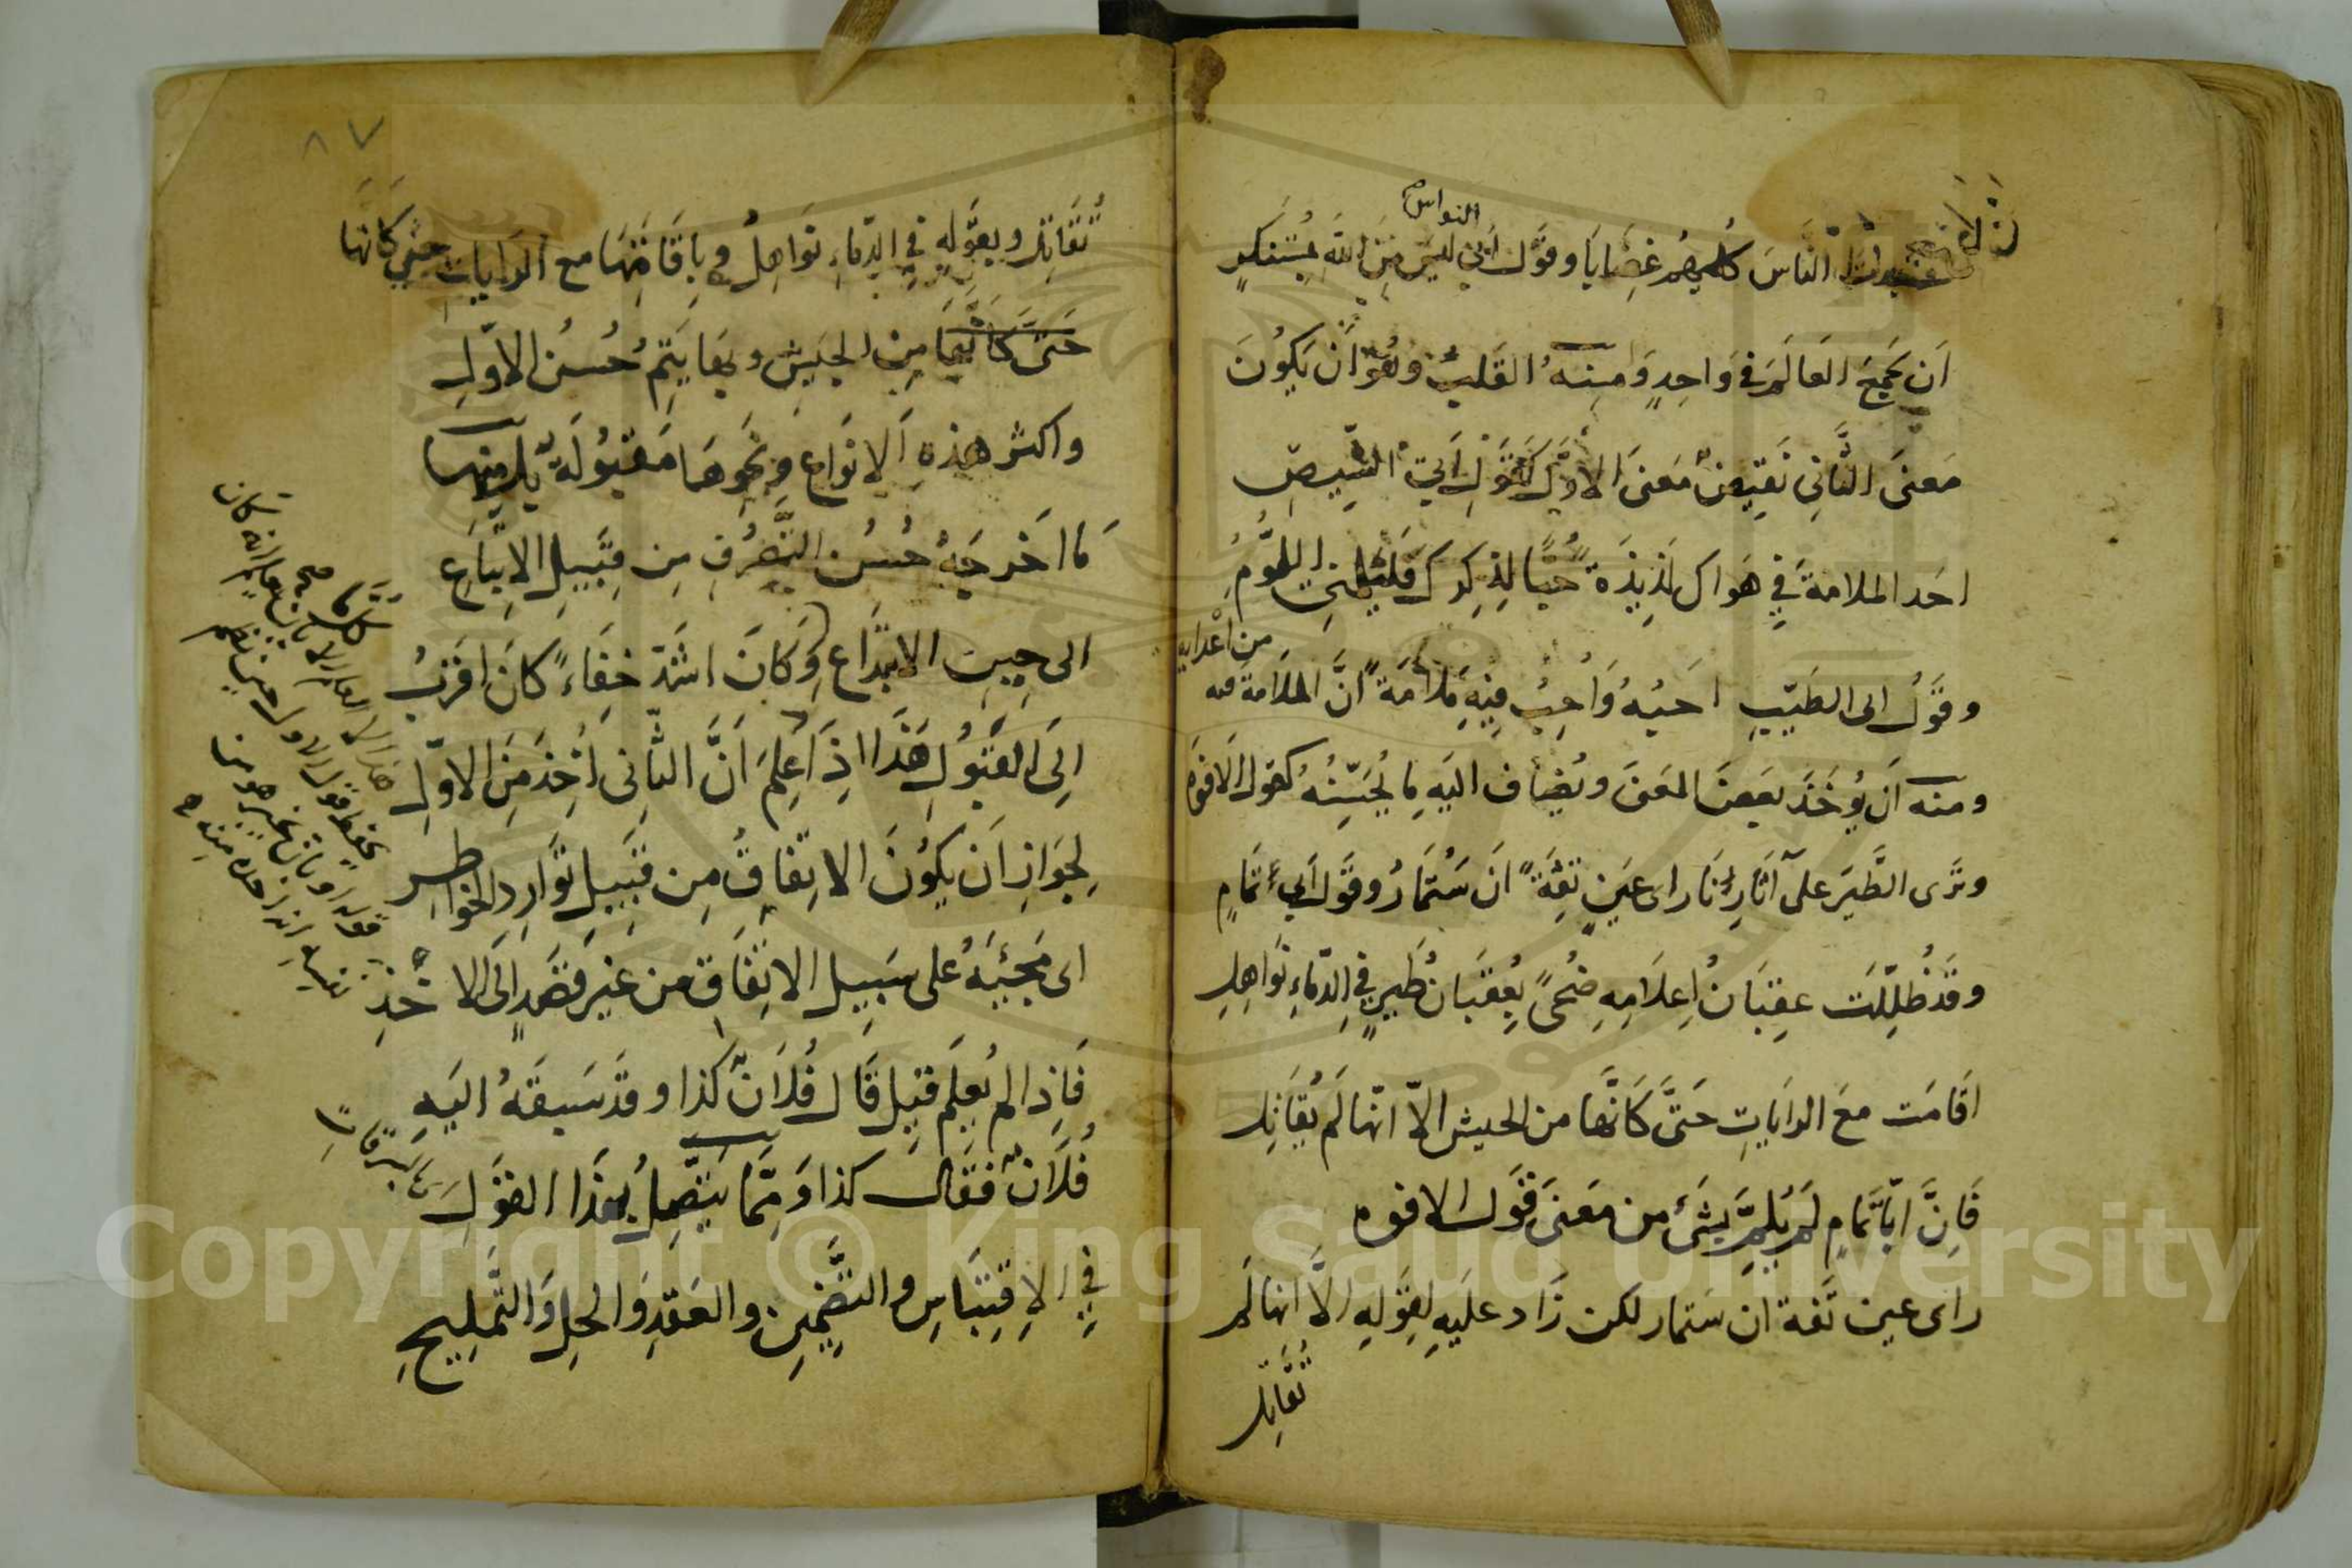 الناس كلهم غضابا وقول أبي النواس ليس من الله بمستنكر
ان يجمع العالم في واحد ومنه القلب وهو ان يكون
معنى الثاني نقيض معنى الاول كقول ابي الشيص
اجد الملامة في هواك لذيذة حبا لذكرك فليلمني اللوم
وقول ابى الطيب احبه واحب فيه ملامة ان الملامة فيه من اعدايه
ومنه ان يؤخذ بعض المعنى ويضاف اليه ما يحسنه كقول الافوه
وترى الطير على آثارنا راى عين ثقة ان ستمار وقول ابي تمام
وقد ظللت عقبان اعلامه ضحى بعقبان طير في الدماء نواهل
اقامت مع الرايات حتى كانها من الجيش الا انها لم تقاتل
فان ابا تمام لم يلم بشئ من معنى قول الافوه
راى عين ثقة ان ستمار لكن زاد عليه بقوله الا انها لم
تقاتل
٨٧
تقاتل وبقوله في الدماء نواهل وباقامتها مع الرايات حتى كانها
حتى كانها من الجيش وبها يتم حسن الاول
واكثر هذه الانواع ونحوها مقبولة بل منها
ما اخرجه حسن التصرف من قبيل الاتباع
الى حيز الابتداع وكل ما كان اشد خفاء كان اقرب
الى القبول هذا اذا علم ان الثاني اخذ من الاول
لجواز ان يكون الاتفاق من قبيل توارد الخواطر
اى مجيئه على سبيل الاتفاق من غير قصد الى الاخذ
فاذا لم يعلم قيل قال فلان كذا وقد سبقه اليه
فلان فقال كذا ومما يتصل بهذا القول
في الاقتباس والتضمين والعقد والحل والتلميح
Copyright © King Saud University